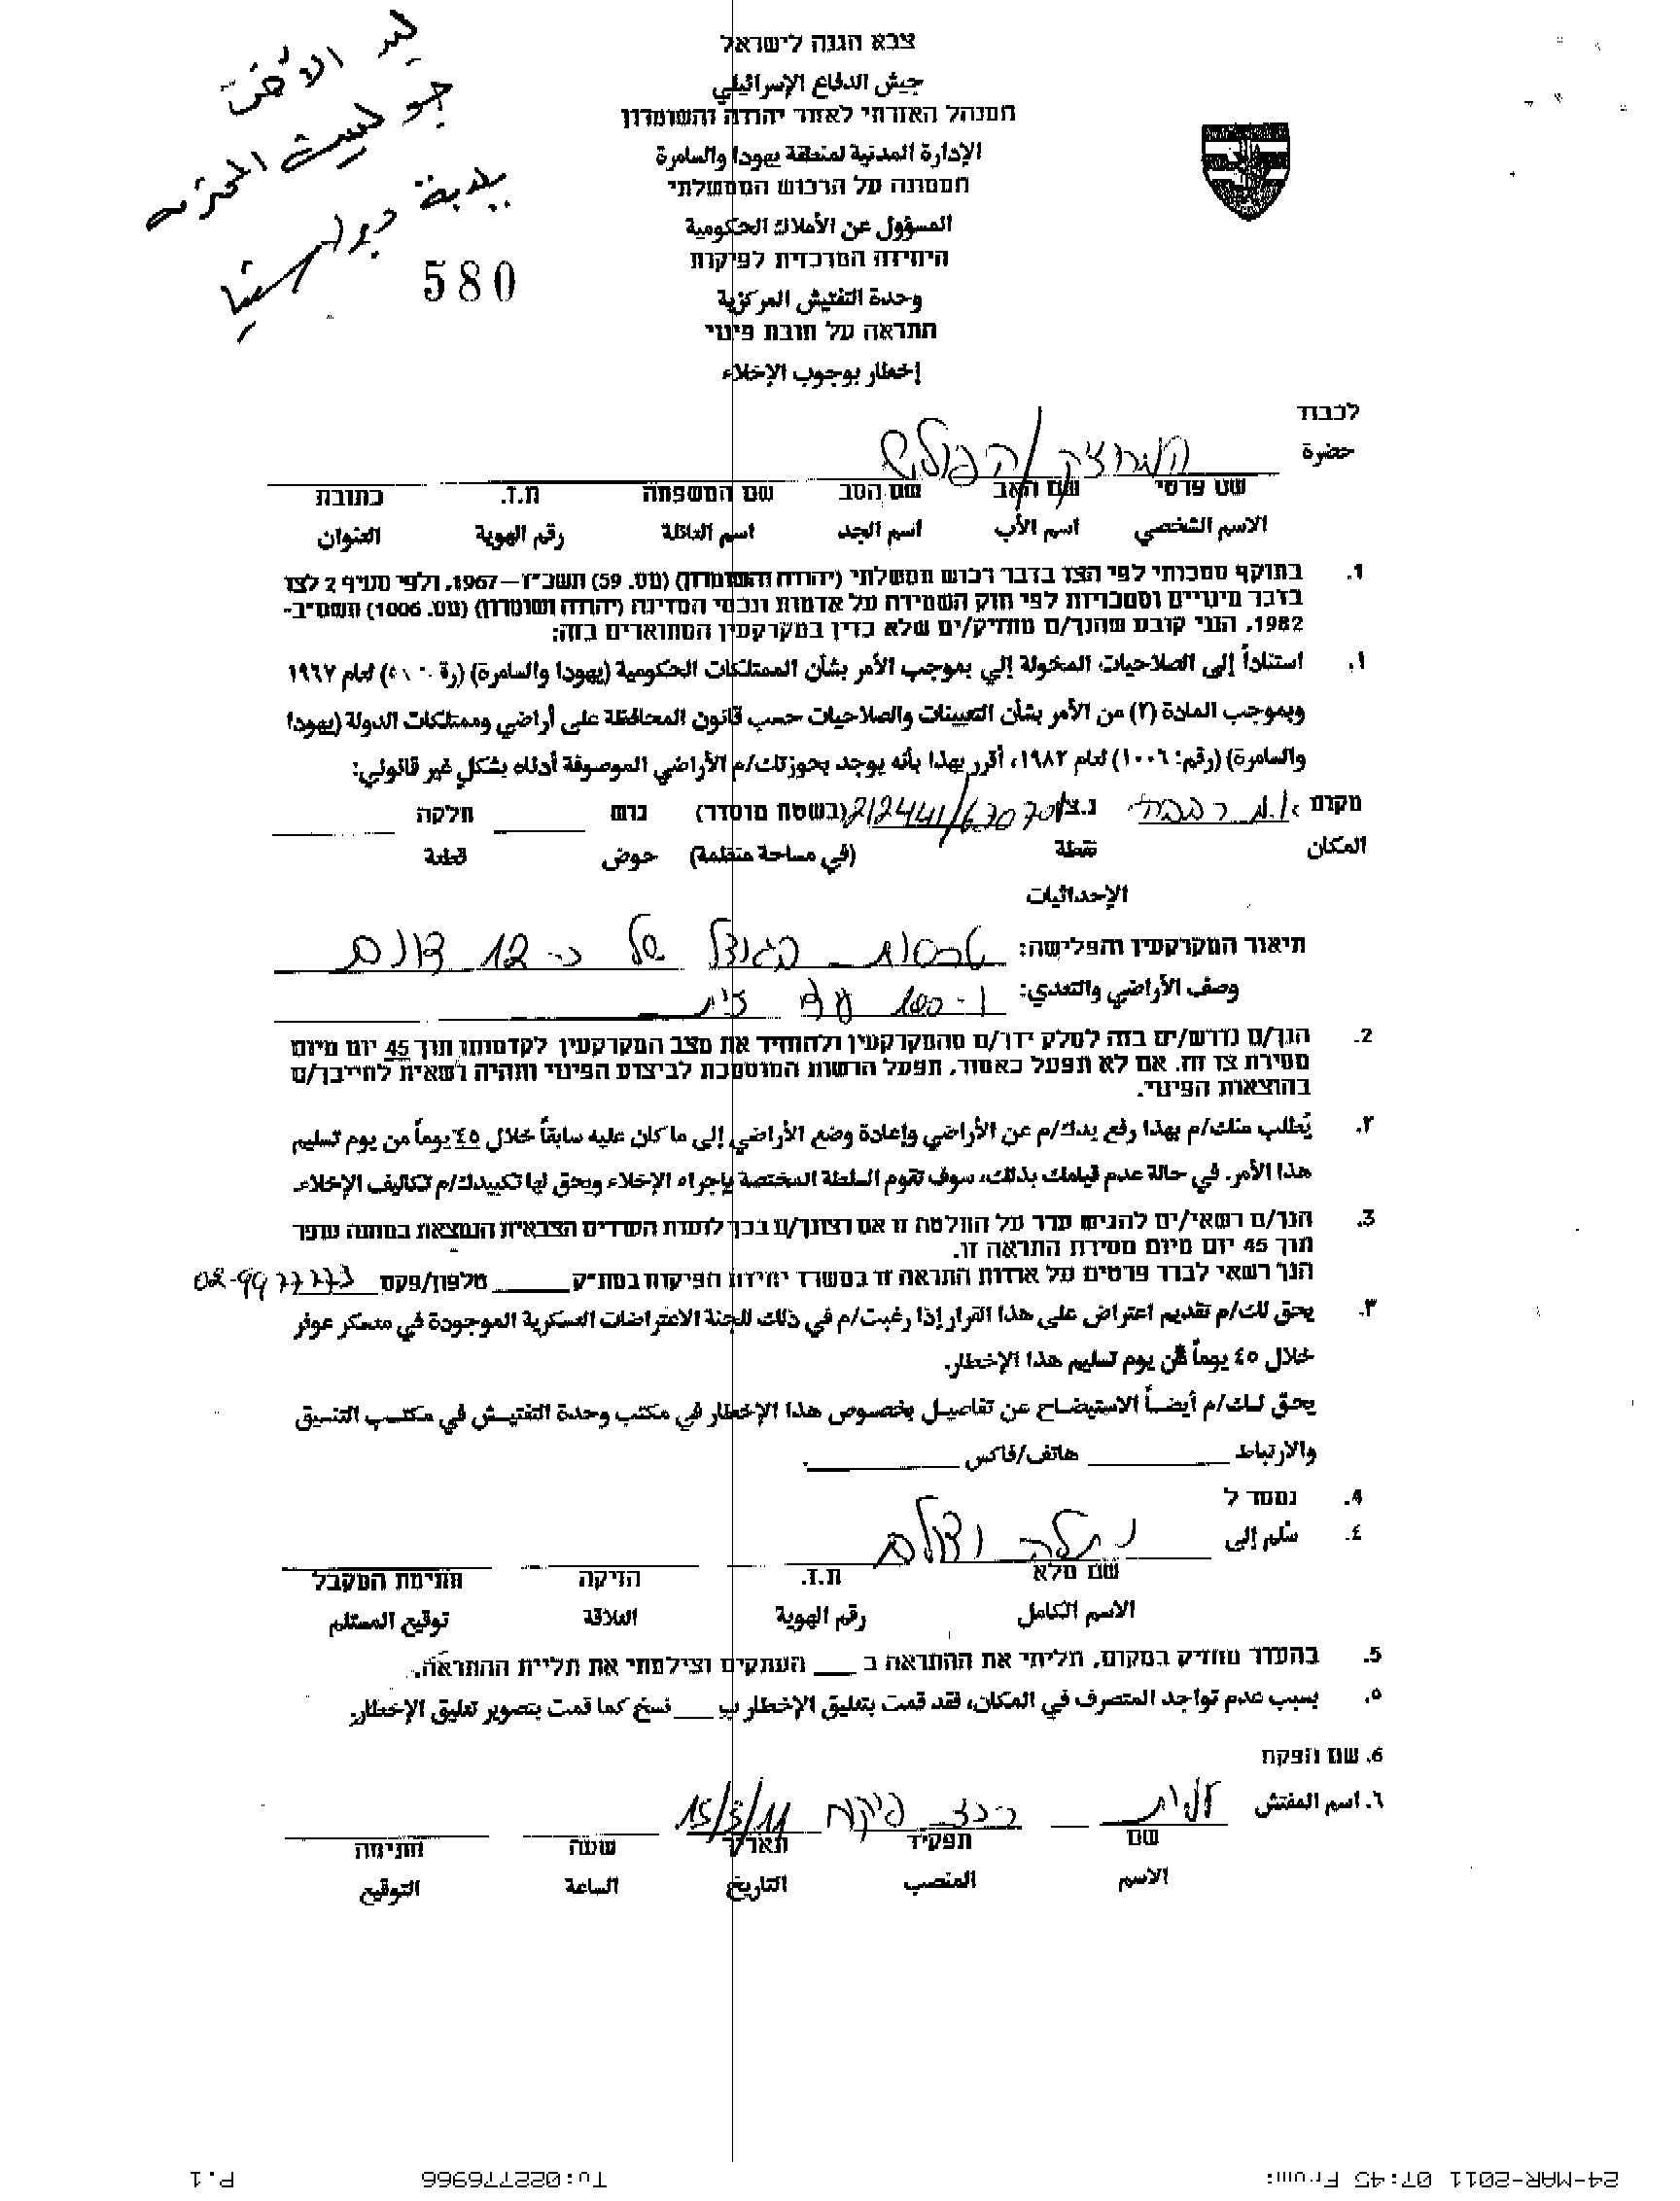 ليد الأخت
جوليت المحترمه
بلدية ديراستيا
580
צבא הגנה לישראל
جيش الدفاع الإسرائيلي
המנהל האזרחי לאזור יהודה והשומרון
الإدارة المدنية لمنطقة يهودا والسامرة
הממונה על הרכוש הממשלתי
المسؤول عن الأملاك الحكومية
היחידה המרכזית לפיקוח
وحدة التفتيش المركزية
התראה על חובת פינוי
إخطار بوجوب الإخلاء
לכבוד
حضرة
המחזיק/הפולש
שם פרטי שם האב שם הסב שם המשפחה ת.ז. כתובת
الاسم الشخصي اسم الأب اسم الجد اسم العائلة رقم الهوية العنوان
1. בתוקף סמכותי לפי הצו בדבר רכוש ממשלתי (יהודה והשומרון) (מס. 59) תשכ"ז-1967, ולפי סעיף 2 לצו
בדבר מינויים וסמכויות לפי חוק השמירה על אדמות ונכסי המדינה (יהודה ושומרון) (מס. 1006) תשמ"ב-
1982, הנני קובע שהנך/ם מחזיק/ים שלא כדין במקרקעין המתוארים בזה:
١. استناداً إلى الصلاحيات المخولة إلي بموجب الأمر بشأن الممتلكات الحكومية (يهودا والسامرة) لعام ١٩٦٧
وبموجب المادة (٢) من الأمر بشأن التعيينات والصلاحيات حسب قانون المحافظة على أراضي وممتلكات الدولة (يهودا
والسامرة) (رقم: ١٠٠٦) لعام ١٩٨٢، أقرر بهذا بأنه يوجد بحوزتك/م الأراضي الموصوفة أدناه بشكل غير قانوني:
מקום נ.צ. 212441/67070 (בשטח מוסדר) גוש חלקה
المكان نقطة (في مساحة منظمة) حوض قطعة
الإحداثيات
תיאור המקרקעין והפלישה: בגודל של כ- 12 דונם
وصف الأراضي والتعدي: ו-100 עצי זית
2. הנך/ם נדרש/ים בזה לסלק ידך/ם מהמקרקעין ולהחזיר את מצב המקרקעין לקדמותו תוך 45 יום מיום
מסירת צו זה. אם לא תפעל כאמור, תפעל הרשות המוסמכת לביצוע הפינוי ותהיה רשאית לחייבך/ם
בהוצאות הפינוי.
٢. يُطلب منك/م بهذا رفع يدك/م عن الأراضي وإعادة وضع الأراضي إلى ما كان عليه سابقاً خلال ٤٥ يوماً من يوم تسليم
هذا الأمر. في حالة عدم قيامك بذلك، سوف تقوم السلطة المختصة بإجراء الإخلاء ويحق لها تكبيدك/م تكاليف الإخلاء.
3. הנך/ם רשאי/ים להגיש ערר על החלטה זו אם רצונך/ם בכך לועדת העררים הצבאית הנמצאת במחנה עופר
תוך 45 יום מיום מסירת התראה זו.
הנך רשאי לברר פרטים על אודות התראה זו במשרד יחידת הפיקוח במת"ק טלפון/פקס 02-9977773
٣. يحق لك/م تقديم اعتراض على هذا القرار إذا رغبت/م في ذلك للجنة الاعتراضات العسكرية الموجودة في معسكر عوفر
خلال ٤٥ يوماً من يوم تسليم هذا الإخطار.
يحق لك/م أيضاً الاستيضاح عن تفاصيل بخصوص هذا الإخطار في مكتب وحدة التفتيش في مكتب التنسيق
والارتباط هاتف/فاكس
4. נמסר ל
٤. سُلم إلى נתלה וצולם
שם מלא ת.ז. הזיקה חתימת המקבל
الاسم الكامل رقم الهوية العلاقة توقيع المستلم
5. בהעדר מחזיק במקום, תליתי את ההתראה ב העתקים וצילמתי את תליית ההתראה.
٥. بسبب عدم تواجد المتصرف في المكان، فقد قمت بتعليق الإخطار ب نسخ كما قمت بتصوير تعليق الإخطار.
6. שם הפקח
٦. اسم المفتش פיקוח 15/3/11
שם תפקיד תאריך שעה חתימה
الاسم المنصب التاريخ الساعة التوقيع
24-MAR-2011 07:45 From: To:022776966 P.1